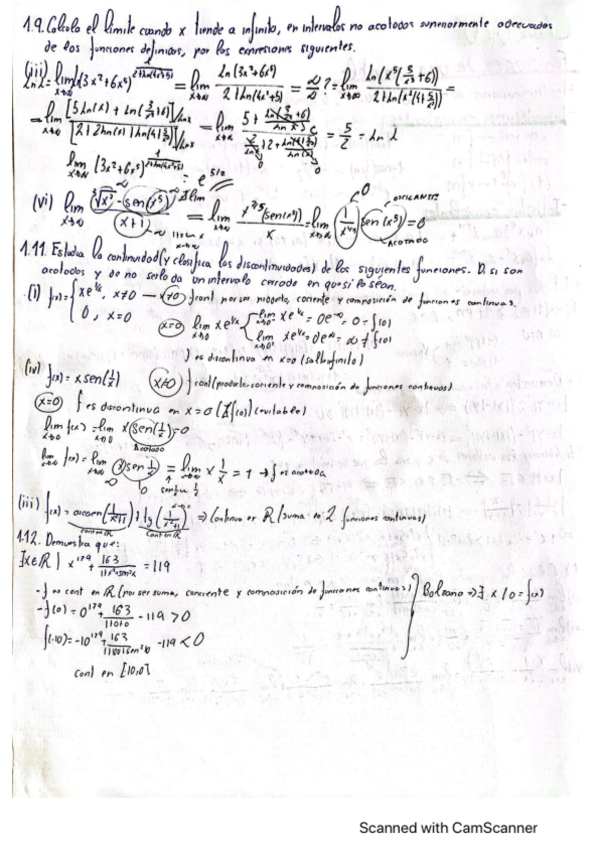 1.9. Calcula el límite cuando x tiende a infinito, en intervalos no acotados superiormente adecuados
de las funciones definidas, por las expresiones siguientes.
(iii) = lim ln(3x²+6x⁵) / 2+ln(4x²+5) = ∞/∞? = lim ln(x⁵(3/x³+6)) / 2+ln(x²(4+5/x²)) =
= lim [5 ln(x) + ln(3/x³+6)]/lnx / [2+2ln(x)+ln(4+5/x²)]/lnx = lim = 5/2 = ln λ
lim (3x²+6x⁵) = e^5/2
(vi) lim sen(x⁵) / x+1 = lim (sen(x⁵)) / x = lim sen(x⁵) = 0
0
OSCILANTE
ACOTADO
1.11. Estudia la continuidad (y clasifica las discontinuidades) de las siguientes funciones. Di si son
acotadas y de no serlo da un intervalo cerrado en que sí lo sean.
(i) f(x) = { xe^1/x, x≠0 → x≠0 f cont por ser producto, cociente y composición de funciones continuas.
0, x=0
x=0 lim xe^1/x { lim xe^1/x = 0e^-∞ = 0 = f(0)
lim xe^1/x = 0e^∞ = ∞ ≠ f(0)
f es discontinua en x=0 (salto infinito)
(iv) f(x) = x sen(1/x) x≠0 f cont (producto, cociente y composición de funciones continuas)
x=0 f es discontinua en x=0 [∄ f(0)] (evitable)
lim f(x) = lim x sen(1/x) = 0
Acotado
lim f(x) = lim x sen 1/x = lim x 1/x = 1 → f es acotada
(iii) f(x) = arcsen(1/) + tg(1/) ⇒ Continua en ℝ (suma de 2 funciones continuas)
1.12. Demuestra que:
∃x∈ℝ | x¹⁷⁹ + 163 / 1+x²+sen²x = 119
- f es cont en ℝ (por ser suma, cociente y composición de funciones continuas) } Bolzano ⇒ ∃ x / 0 = f(x)
- f(0) = 0¹⁷⁹ + 163/1+0+0 - 119 > 0
f(-10) = -10¹⁷⁹ + 163/1+100+sen²10 - 119 < 0
cont en [10,0]
Scanned with CamScanner